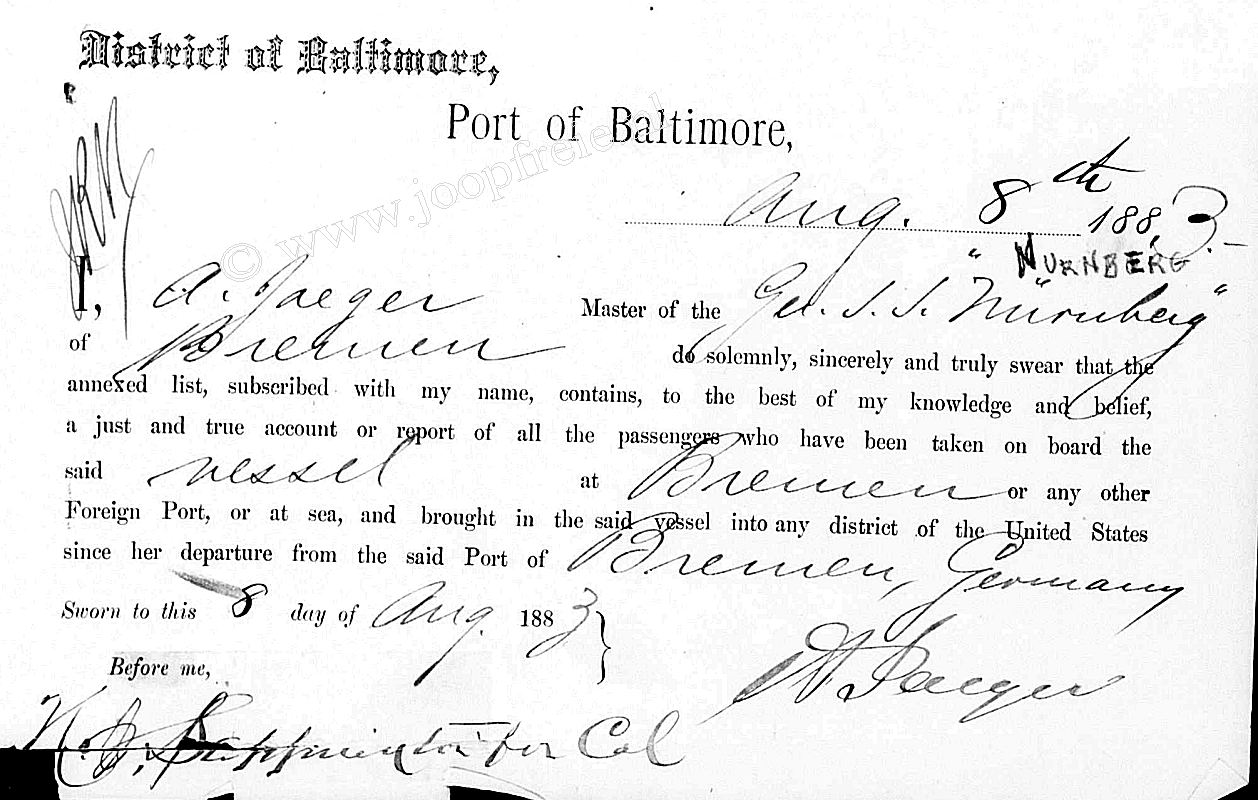 District of Baltimore,
Port of Baltimore,
© www.joopfreie
Aug. 8th 1883.-
"NURNBERG"
I, A. Jaeger Master of the Ge. S. S. "Nürnberg"
of Bremen do solemnly, sincerely and truly swear that the
annexed list, subscribed with my name, contains, to the best of my knowledge and belief,
a just and true account or report of all the passengers who have been taken on board the
said vessel at Bremen or any other
Foreign Port, or at sea, and brought in the said vessel into any district of the United States
since her departure from the said Port of Bremen, Germany
Sworn to this 8 day of Aug. 1883
A Jaeger
Before me,
for Col